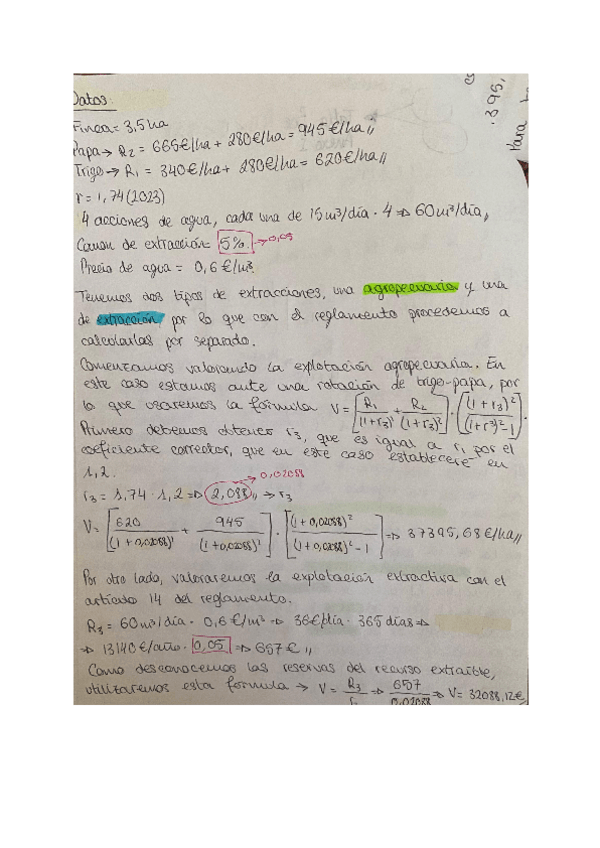 Datos:
Finca = 3,5 ha
Papa → R2 = 665€/ha + 280€/ha = 945€/ha
Trigo → R1 = 340€/ha + 280€/ha = 620€/ha
r = 1,74 (2023)
4 acciones de agua, cada una de 15 m³/día · 4 ⇒ 60 m³/día
Canon de extracción = 5% → 0,05
Precio de agua = 0,6 €/m³
Tenemos dos tipos de extracciones, una agropecuaria y una
de extracción, por lo que con el reglamento procedemos a
calcularlas por separado.
Comenzamos valorando la explotación agropecuaria. En
este caso estamos ante una rotación de trigo-papa, por
lo que usaremos la fórmula V = [R1/(1+r3)¹ + R2/(1+r3)²] · [(1+r3)²/(1+r3)²-1].
Primero debemos obtener r3, que es igual a r, por el
coeficiente corrector, que en este caso estableceré en
1,2.
r3 = 1,74 · 1,2 ⇒ 2,088 → r3 → 0,02088
V = [620/(1+0,02088)¹ + 945/(1+0,02088)²] · [(1+0,02088)²/(1+0,02088)²-1] ⇒ 37395,68 €/ha
Por otro lado, valoraremos la explotación extractiva con el
artículo 14 del reglamento.
R3 = 60 m³/día · 0,6 €/m³ ⇒ 36€/día · 365 días ⇒
⇒ 13140 €/año · 0,05 ⇒ 657 €
Como desconocemos las reservas del recurso extraíble,
utilizaremos esta fórmula → V = R3/r ⇒ 657/0,02088 ⇒ V = 32088,12€
395,
para